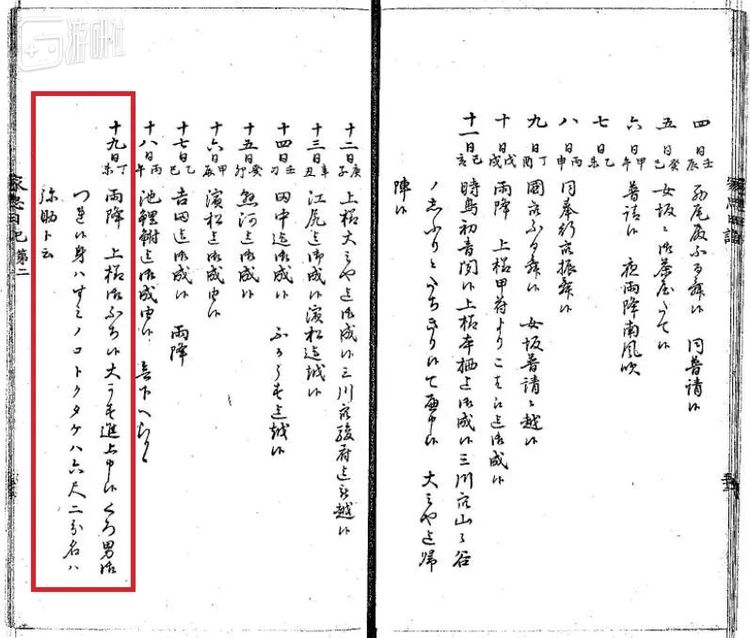 四日壬辰 殿ふる舞候 同普請候
五日癸巳 女坂ニ御茶屋たて候
六日甲午 普請候 夜雨降南風吹
七日乙未
八日丙申 同奉行衆振舞候
九日丁酉 國衆ふる舞候 女坂普請ニ越候
十日戊戌 雨降 上様甲苻より 迄御成候
十一日己亥 時鳥初音聞候 上様本栖迄御成候 三川衆山々谷
ノ 申候 大ミや迄帰
陣候
十二日庚子 上様大ミや迄御成候 三川衆駿府迄被越候
十三日辛丑 江尻迄御成候 濱松迄越候
十四日壬刁 田中迄御成候 ふかうす迄越候
十五日癸卯 懸河迄御成候
十六日甲辰 濱松迄御成由候
十七日乙巳 吉田迄御成候 雨降
十八日丙午 池鯉鮒迄御成由候
十九日丁未 雨降 上様御ふち候大うす進上申候くろ男御
つれ候身ハすミノコトクタケハ六尺二分名ハ
弥助ト云
家忠日記 第二
游研社